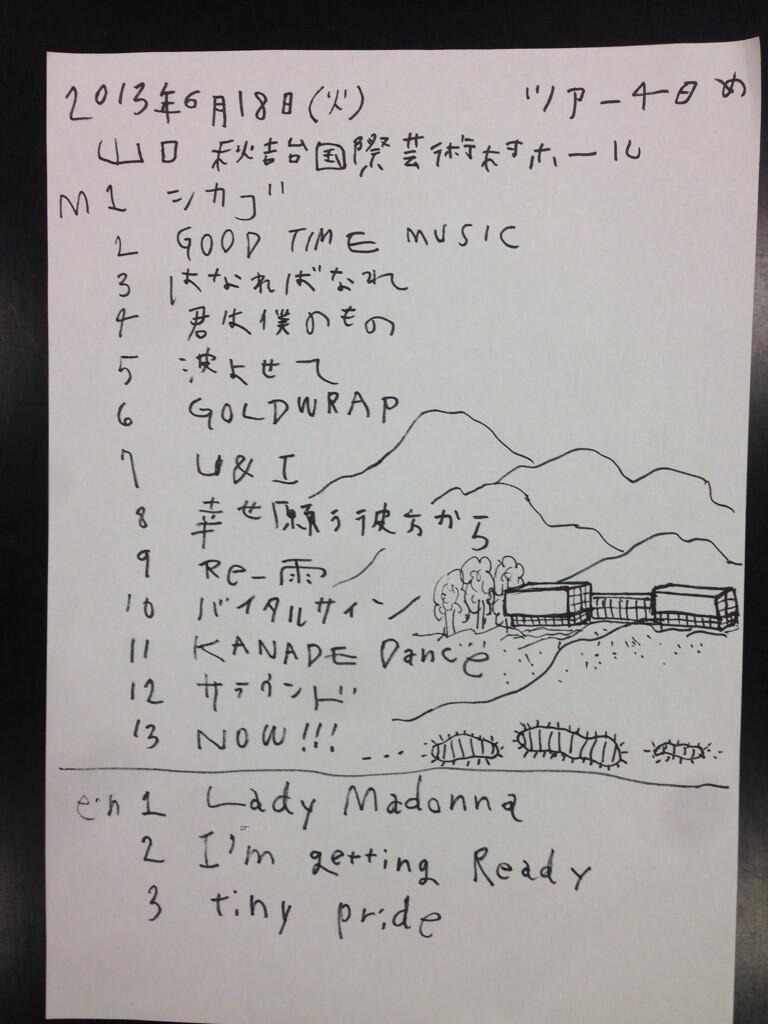 2013年6月18日(火) ツアー4日め
山口 秋吉台国際芸術村ホール
M1 シカゴ
2 GOOD TIME MUSIC
3 はなればなれ
4 君は僕のもの
5 波よせて
6 GOLDWRAP
7 U&I
8 幸せ願う彼方から
9 Re-雨
10 バイタルサイン
11 KANADE Dance
12 サラウンド
13 NOW!!!
en 1 Lady Madonna
2 I'm getting Ready
3 tiny pride